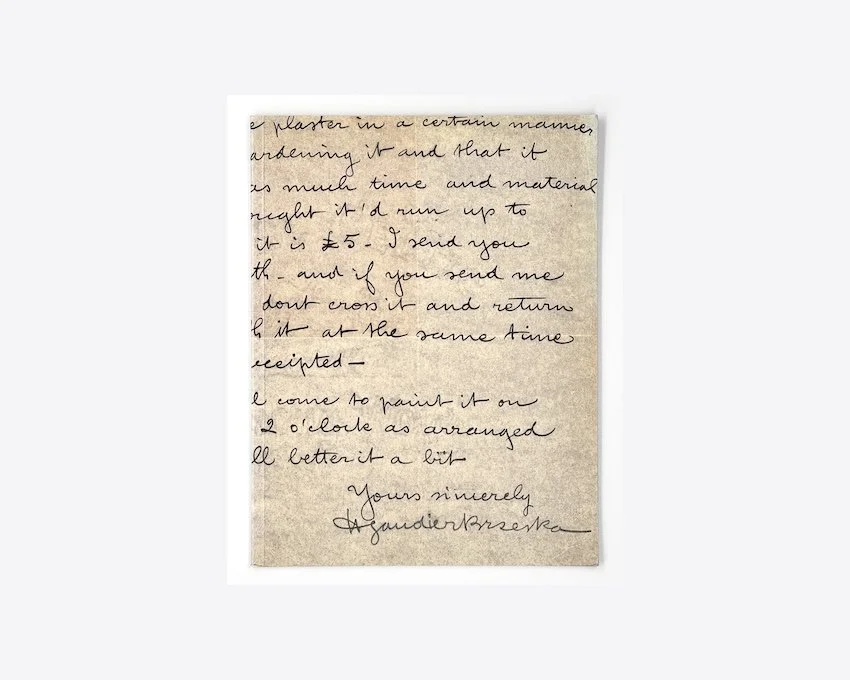 e plaster in a certain manner
ardening it and that it
as much time and material
ought it'd run up to
it is £5 - I send you
th - and if you send me
dont cross it and return
h it at the same time
eceipted —
l come to paint it on
2 o'clock as arranged
ll better it a bit
Yours sincerely
H gaudier Brzeska